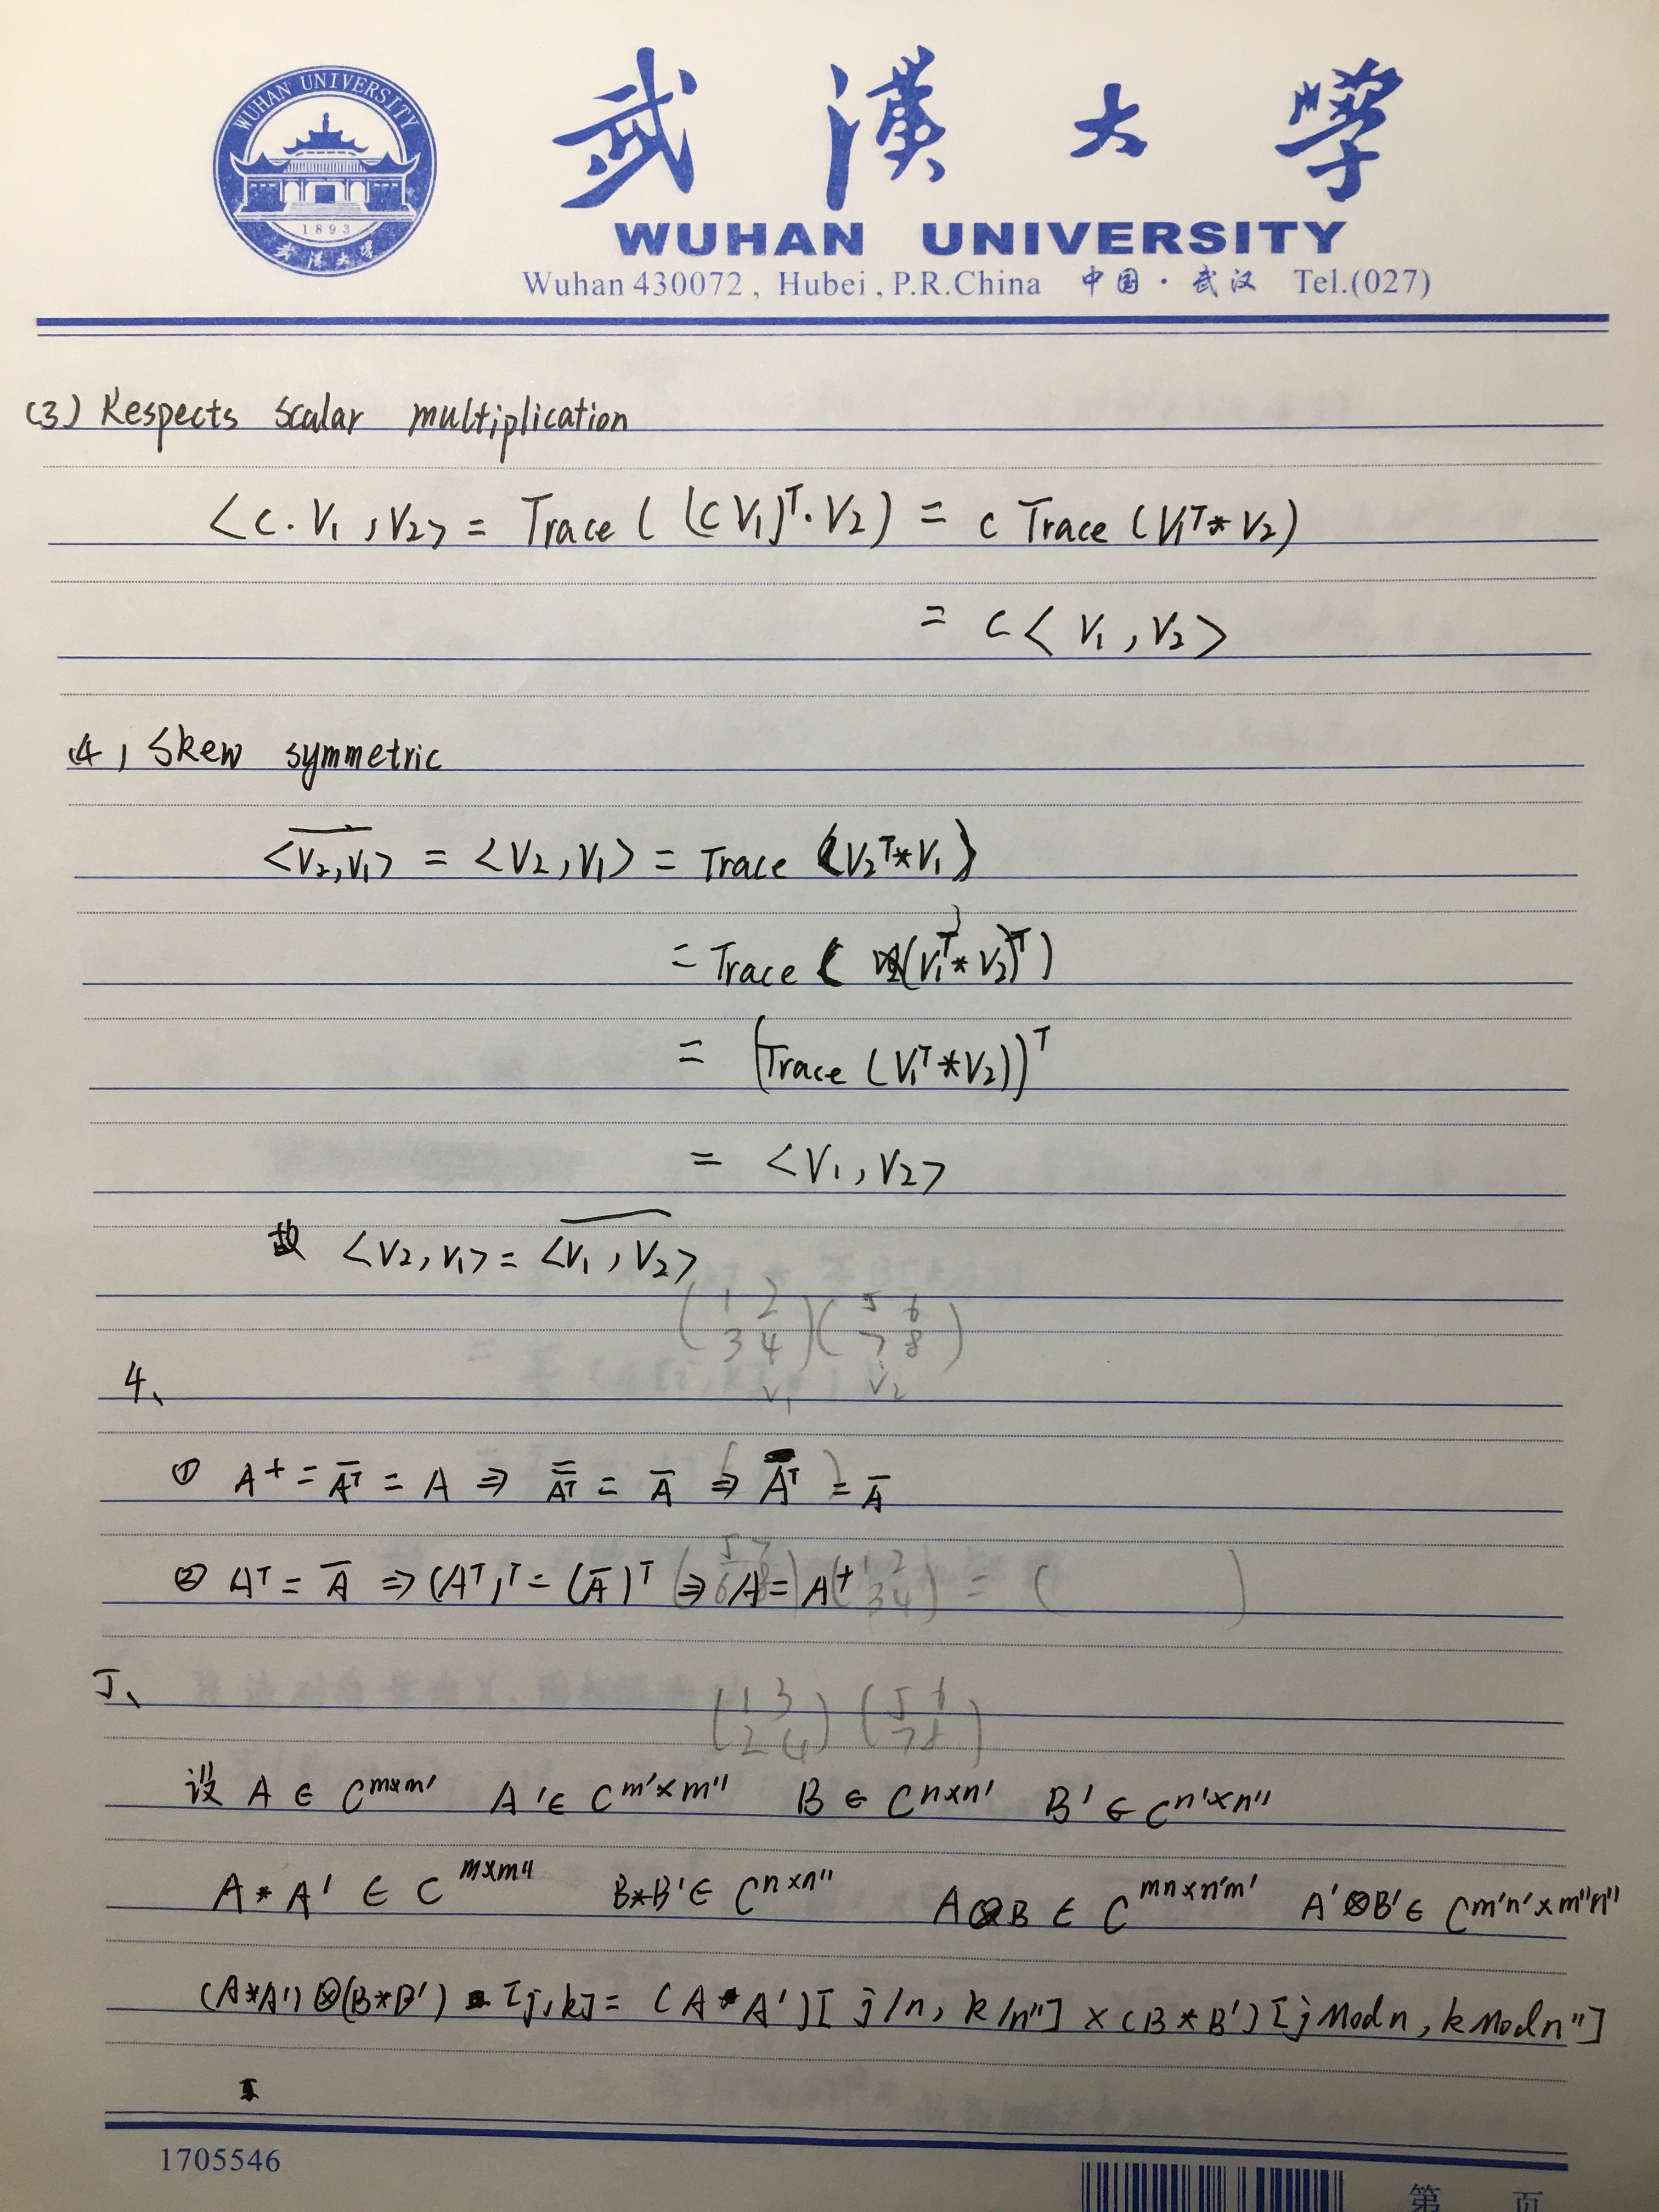 WUHAN UNIVERSITY
1893
武汉大学
武漢大學
WUHAN UNIVERSITY
Wuhan 430072, Hubei, P.R.China 中国·武汉 Tel.(027)
(3) Respects scalar multiplication
<c·V₁, V₂> = Trace((cV₁)ᵀ·V₂) = c Trace(V₁ᵀ*V₂)
= c<V₁, V₂>
(4) Skew symmetric
<V̅₂,̅V̅₁> = <V₂, V₁> = Trace(V₂ᵀ*V₁)
= Trace((V₁ᵀ*V₂)ᵀ)
= (Trace(V₁ᵀ*V₂))ᵀ
= <V₁, V₂>
故 <V₂, V₁> = <V̅₁,̅V̅₂>
(1 2 (5 6
3 4) 7 8)
V₁ V₂
4、
① A⁺ = A̅ᵀ = A ⇒ A̿ᵀ = A̅ ⇒ Aᵀ = A̅
② Aᵀ = A̅ ⇒ (Aᵀ)ᵀ = (A̅)ᵀ ⇒ A = A⁺
(5 7 (1 2
6 8) 3 4) = ( )
5、
(1 3 (5 6
2 4) 7 8)
设 A ∈ C^{m×m'} A' ∈ C^{m'×m''} B ∈ C^{n×n'} B' ∈ C^{n'×n''}
A*A' ∈ C^{m×m''} B*B' ∈ C^{n×n''} A⊗B ∈ C^{mn×n'm'} A'⊗B' ∈ C^{m'n'×m''n''}
(A*A')⊗(B*B') [j,k] = (A*A')[j/n, k/n''] × (B*B')[j Mod n, k Mod n'']
1705546
第 页